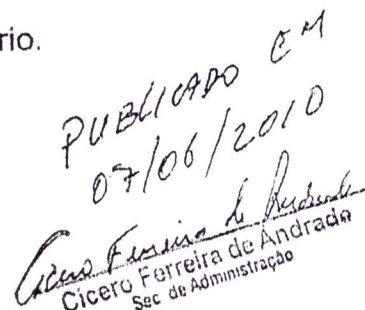 rio.
PUBLICADO EM
07/06/2010
Cícero Ferreira de Andrade
Cícero Ferreira de Andrade
Sec de Administração